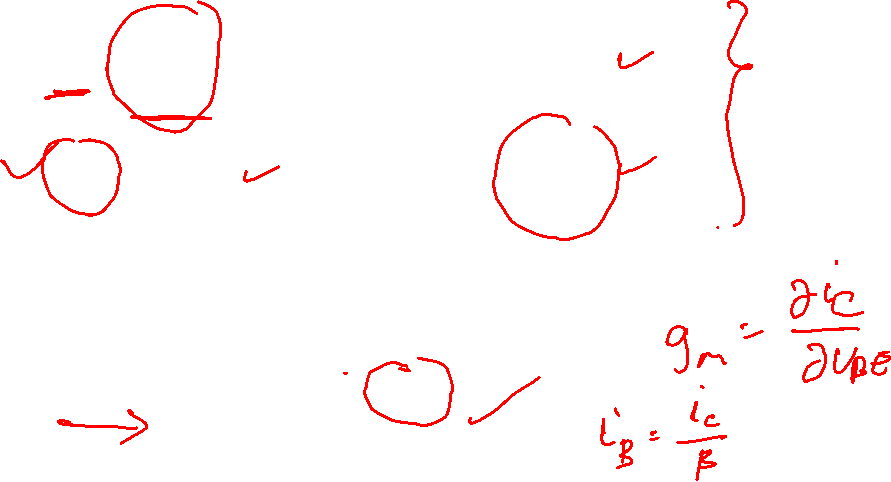 g_m = ∂i_C / ∂v_BE
i_B = i_C / β